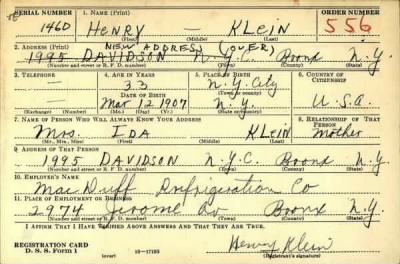 SERIAL NUMBER 1. NAME (Print) ORDER NUMBER
1460 HENRY — KLEIN 556
(First) (Middle) (Last)
2. ADDRESS (Print) NEW ADDRESS (OVER)
1995 DAVIDSON N.Y.C. Bronx N.Y.
(Number and street or R. F. D. number) (Town) (County) (State)
3. TELEPHONE 4. AGE IN YEARS 5. PLACE OF BIRTH 6. COUNTRY OF CITIZENSHIP
— 33 N.Y. City
DATE OF BIRTH (Town or county)
— Mar 12 1907 N.Y. U.S.A.
(Exchange) (Number) (Mo.) (Day) (Yr.) (State or country)
7. NAME OF PERSON WHO WILL ALWAYS KNOW YOUR ADDRESS 8. RELATIONSHIP OF THAT PERSON
Mrs. IDA KLEIN Mother
(Mr., Mrs., Miss) (First) (Middle) (Last)
9. ADDRESS OF THAT PERSON
1995 DAVIDSON N.Y.C. Bronx N.Y.
(Number and street or R. F. D. number) (Town) (County) (State)
10. EMPLOYER'S NAME
Mac Duff Refrigeration Co
11. PLACE OF EMPLOYMENT OR BUSINESS
2974 Jerome Bronx N.Y.
(Number and street or R. F. D. number) (Town) (County) (State)
I AFFIRM THAT I HAVE VERIFIED ABOVE ANSWERS AND THAT THEY ARE TRUE.
REGISTRATION CARD Henry Klein
D. S. S. Form 1 (over) 16—17105 (Registrant's signature)